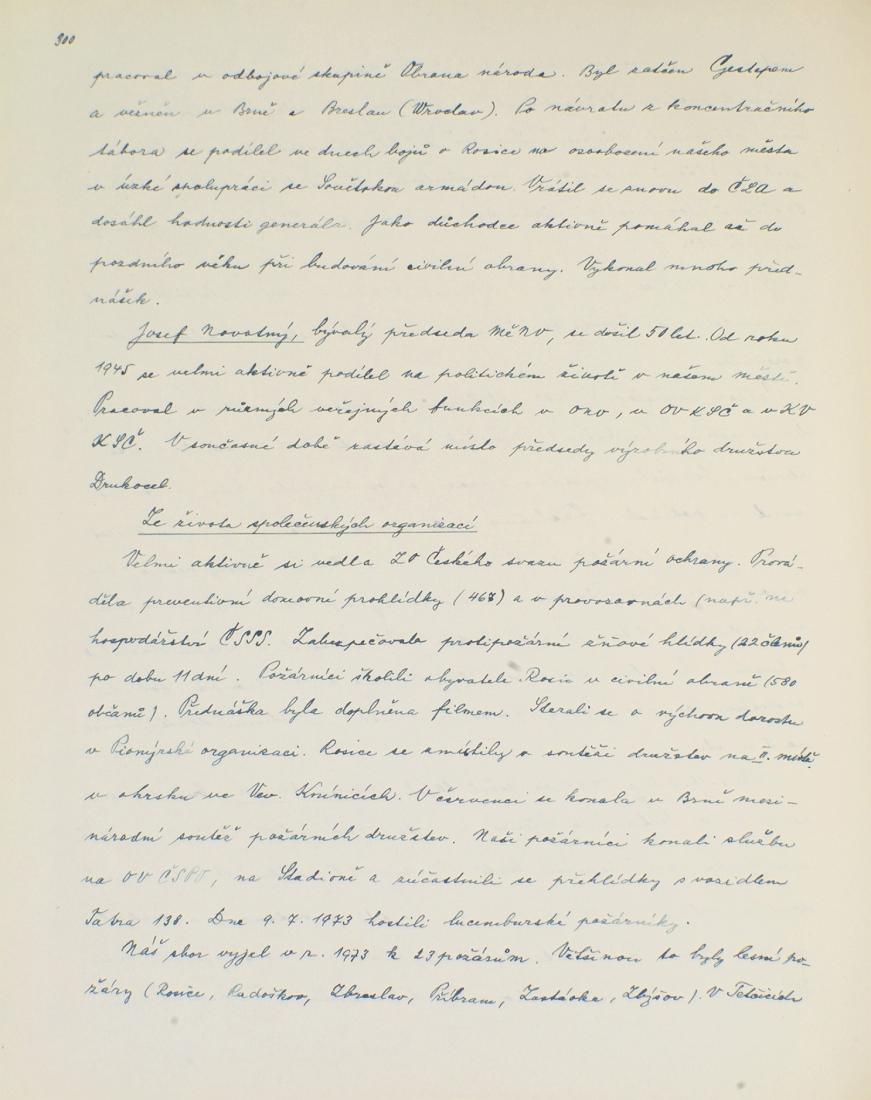 300
pracoval v odbojové skupině Obrana národa. Byl zatčen Gestapem
a vězněn v Brně a Breslau (Wroclav). Po návratu z koncentračního
tábora se podílel ve dnech bojů o Rosice na osvobození našeho města
v úzké spolupráci se Sovětskou armádou. Vrátil se znovu do ČLA a
dosáhl hodnosti generála. Jako důchodce aktivně pomáhal až do
pozdního věku při budování civilní obrany. Vykonal mnoho před-
nášek.
Josef Novotný, bývalý předseda MěNV, se dožil 50 let. Od roku
1945 se velmi aktivně podílel na politickém životě v našem městě.
Pracoval v různých veřejných funkcích v ONV, v OV KSČ a v KV
KSČ. V současné době zastává místo předsedy výrobního družstva
Drukocel.
Ze života společenských organizací
Velmi aktivně si vedla ZO Českého svazu požární ochrany. Prová-
děla preventivní domovní prohlídky (468) a v provozovnách (např. na
hospodářství ČSSS. Zabezpečovala protipožární žňové hlídky (22 členů)
po dobu 11 dní. Požárníci školili obyvatele Rosic v civilní obraně (580
občanů). Přednáška byla doplněna filmem. Starali se o výchovu dorostu
v Pionýrské organizaci. Rosice se umístily v soutěži družstev na II. místě
v okrsku ve Vev. Knínicích. V červenci se konala v Brně mezi-
národní soutěž požárních družstev. Naši požárníci konali službu
na OV ČSPO, na Stadioně a zúčastnili se přehlídky s vozidlem
Tatra 138. Dne 9. 7. 1973 hostili lucemburské požárníky.
Náš sbor vyjel v r. 1973 k 23 požárům. Většinou to byly lesní po-
žáry (Rosice, Radoškov, Zbraslav, Příbram, Zastávka, Zbýšov). V Tetčicích